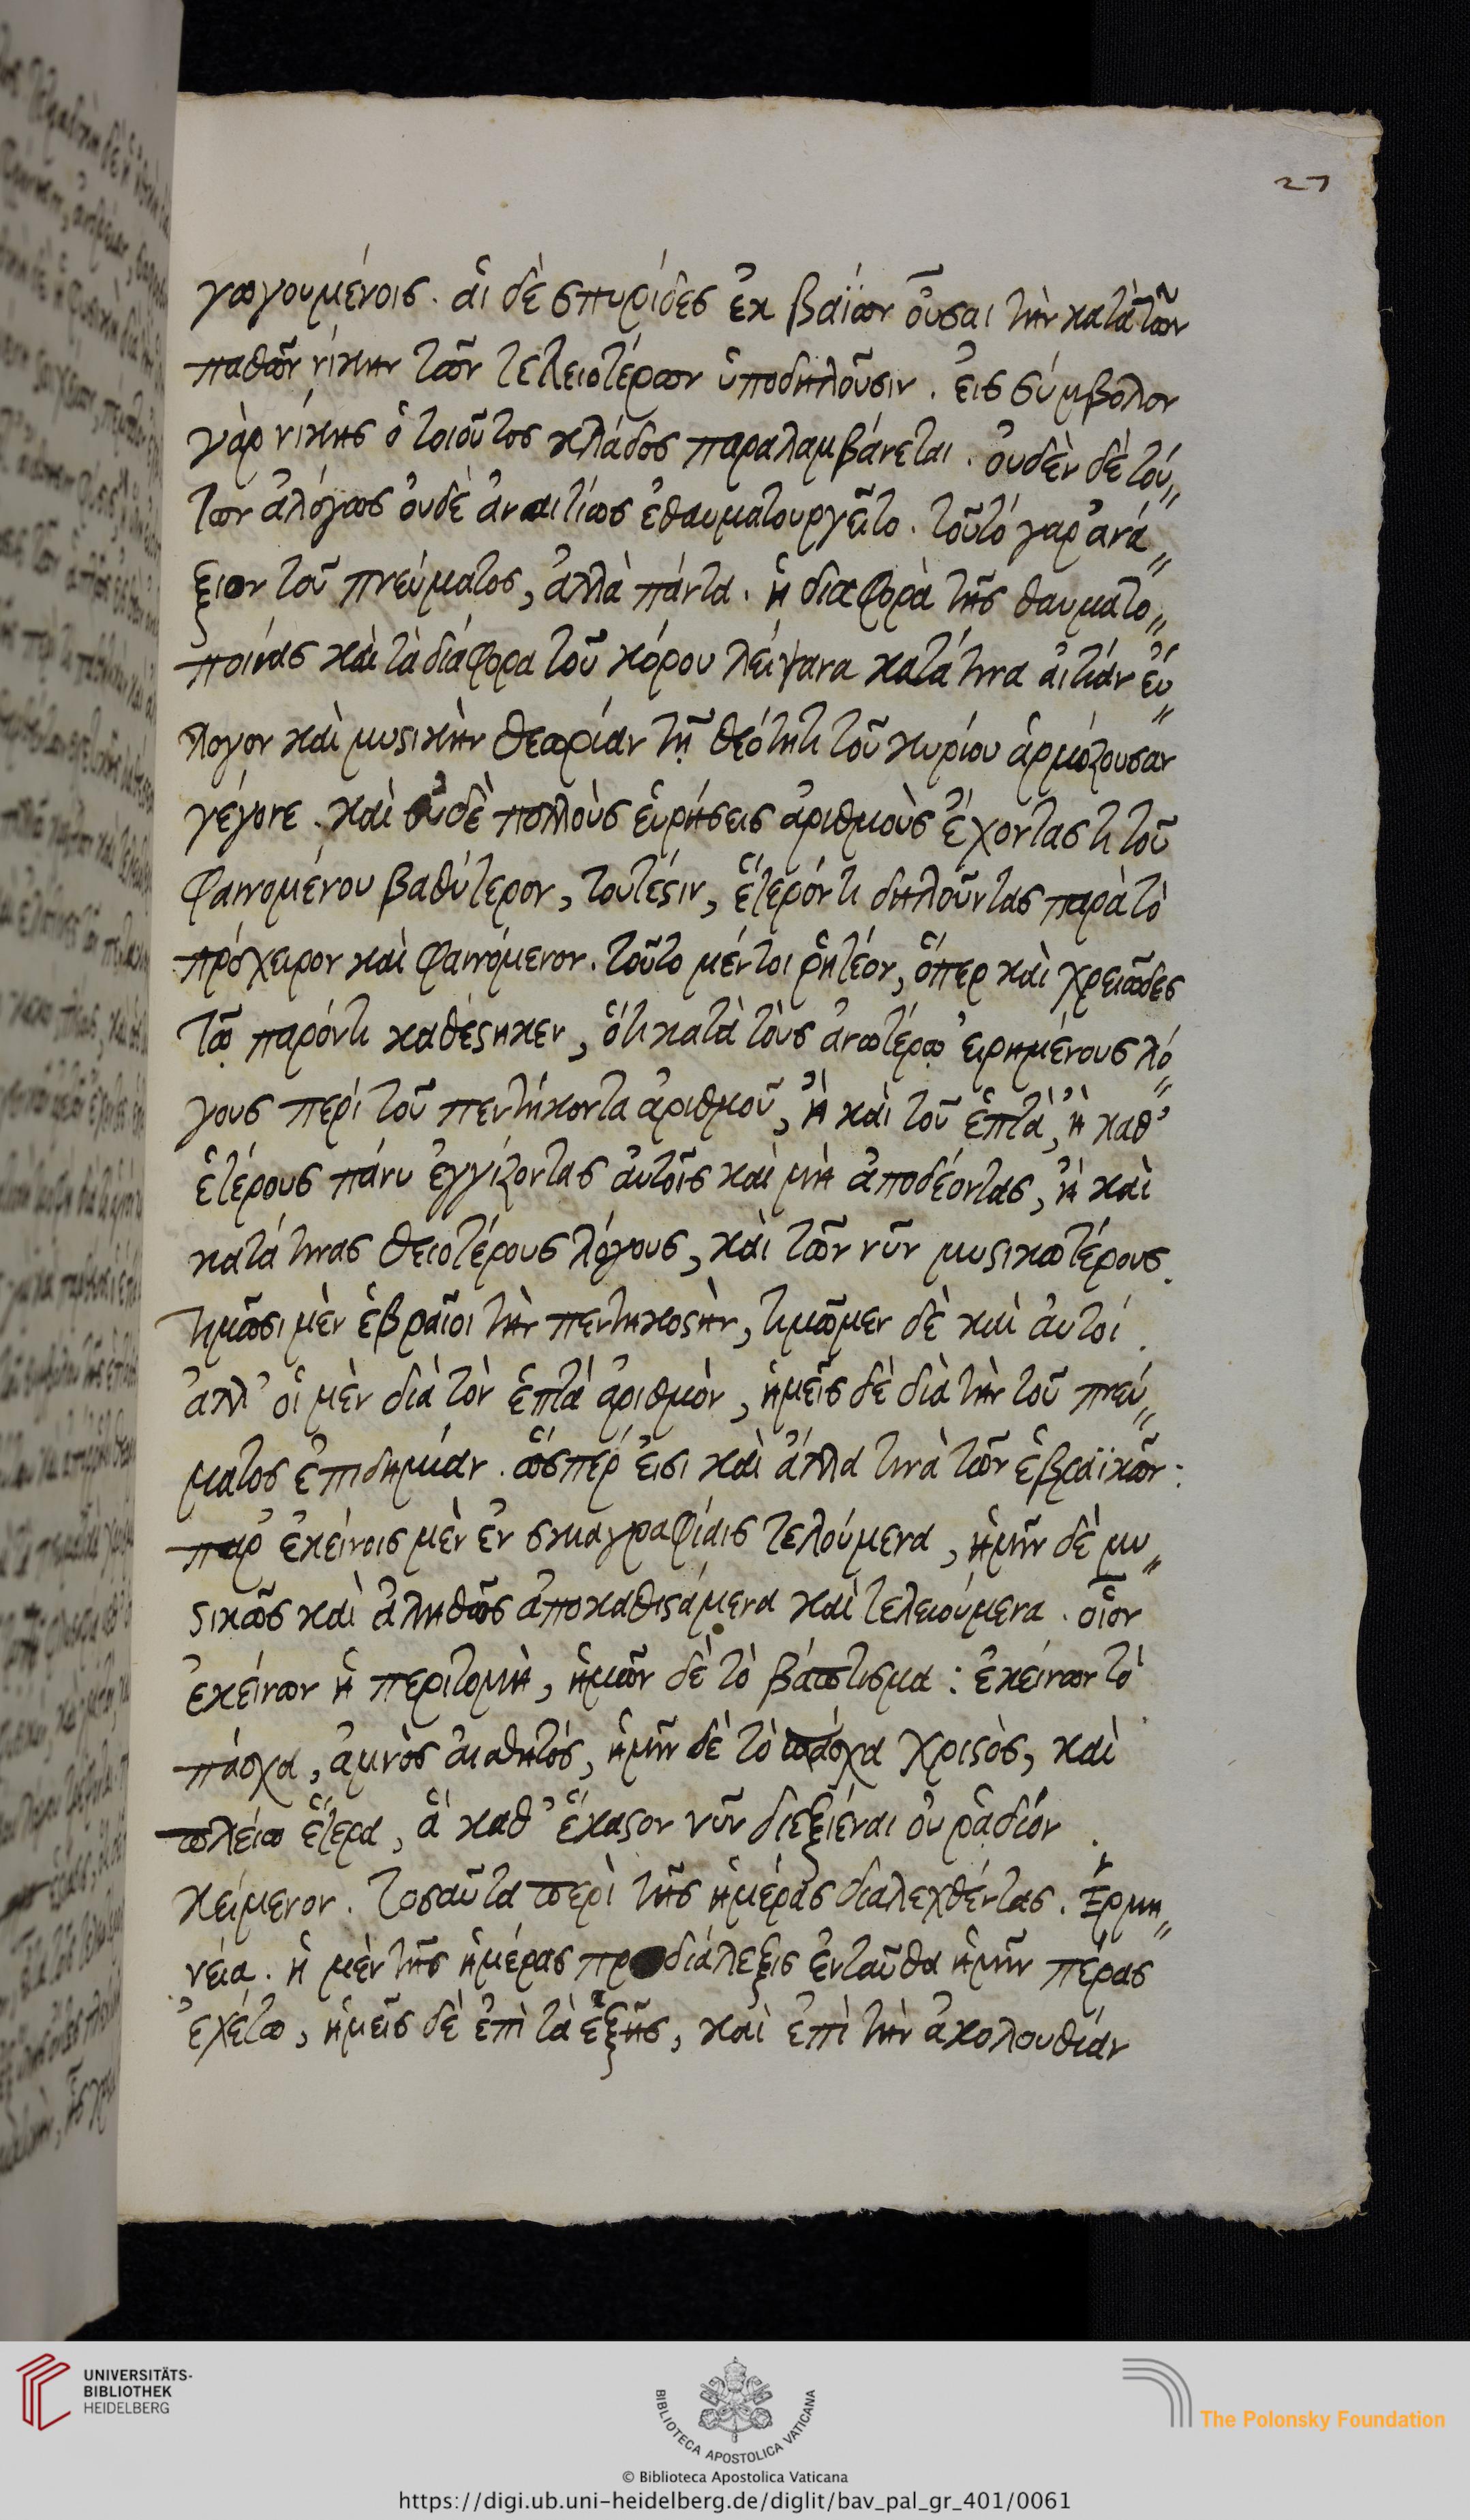 27
γωγουμένοις. ἁι δὲ σπυρίδες ἐκ βαΐων ὀῦσαι τὴν κατὰ τῶν
παθῶν νίκην τῶν τελειοτέρων ὑποδηλοῦσιν. ἐις σύμβολον
γὰρ νίκης ὁ τοιοῦτος κλάδος παραλαμβάνεται. ὀυδὲν δὲ τού〃
των ἀλόγως ὀυδὲ ἀναιτίως ἐθαυματουργεῖτο. τοῦτό γαρ ἀνά〃
ξιον τοῦ πνεύματος, ἀλλὰ πάντα. ἡ διαφορὰ τῆς θαυματο〃
ποιίας κὰι τὰ διάφορα τοῦ κόρου λείψανα κατά τινα ἀιτίαν ἐύ〃
λογον καὶ μυστικὴν θεωρίαν τῇ θεότητι τοῦ κυρίου ἁρμόζουσαν
γέγονε. καὶ ὀυδὲ πολλοὺς ἑυρήσεις ἀριθμοὺς ἔχοντας τι τοῦ
φαινομένου βαθύτερον, τουτέστιν, ἕτερόν τι δηλοῦντας παρὰ τὸ
πρόχειρον καὶ φαινόμενον. τοῦτο μέντοι ῥητέον, ὅπερ καὶ χρειῶδες
τῷ παρόντι καθέστηκεν, ὅτι κατὰ τοὺς ἀνωτέρω ἐιρημένους λό〃
γους περί τοῦ πεντήκοντα ἀριθμοῦ, ἢ καὶ τοῦ ἑπτὰ, ἢ καθ᾽
ἑτέρους πάνυ ἐγγίζοντας ἀυτοῖς καὶ μὴ ἀποδέοντας, ἢ καὶ
κατά τινας θειοτέρους λόγους, κὰι τῶν νῦν μυστικωτέρους.
τιμῶσι μὲν ἑβραῖοι τὴν πεντηκοστὴν, τιμῶμεν δὲ καὶ ἀυτοί.
ἀλλ᾽ ὁι μὲν διὰ τὸν ἑπτὰ ἀριθμὸν, ἡμεῖς δὲ διὰ τὴν τοῦ πνεύ〃
ματος ἐπιδημίαν. ὥσπέρ ἐισι καὶ ἄλλα τινὰ τῶν ἑβραϊκῶν:
παρ᾽ ἐκείνοις μὲν ἐν σκιαγραφίαις τελούμενα, ἡμῖν δὲ μυ〃
στικῶς καὶ ἀληθῶς ἀποκαθιστάμενα καὶ τελειούμενα. οἷον
ἐκείνων ἡ περιτομὴ, ἡμῶν δὲ τὸ βάπτισμα: ἐκείνων τὸ
πάσχα, ἀμνὸς ἀισθητός, ἡμῖν δὲ τὸ πάσχα χριστὸς, καὶ
πλείω ἕτερα, ἃ καθ᾽ ἕκαστον νῦν διεξιέναι ὀυ ῥᾴδιόν.
κείμενον. τοσαῦτα περὶ τῆς ἡμέρας διαλεχθέντας. Ἑρμη〃
νέια. ἡ μὲν τῆς ἡμέρας προδιάλεξις ἐνταῦθα ἡμῖν πέρας
ἐχέτω, ἡμεῖς δὲ ἐπὶ τὰ ἑξῆς, καὶ ἐπὶ τὴν ἀκολουθίαν
UNIVERSITÄTS-
BIBLIOTHEK
HEIDELBERG
BIBLIOTECA APOSTOLICA VATICANA
The Polonsky Foundation
© Biblioteca Apostolica Vaticana
https://digi.ub.uni-heidelberg.de/diglit/bav_pal_gr_401/0061